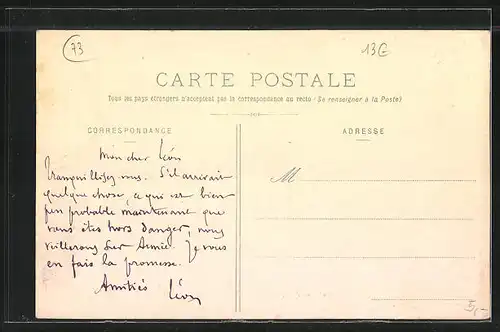 73
13G
CARTE POSTALE
Tous les pays étrangers n'acceptent pas la correspondance au recto (Se renseigner à la Poste)
CORRESPONDANCE
ADRESSE
Mon cher Léon
Tranquillisez-vous. S'il arrivait
quelque chose, ce qui est bien
peu probable maintenant que
vous êtes hors danger, nous
veillerons sur Annie. Je vous
en fais la promesse.
Amitiés Léon
M